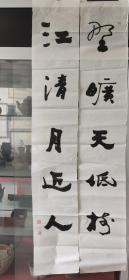 野曠天低樹
江清月近人